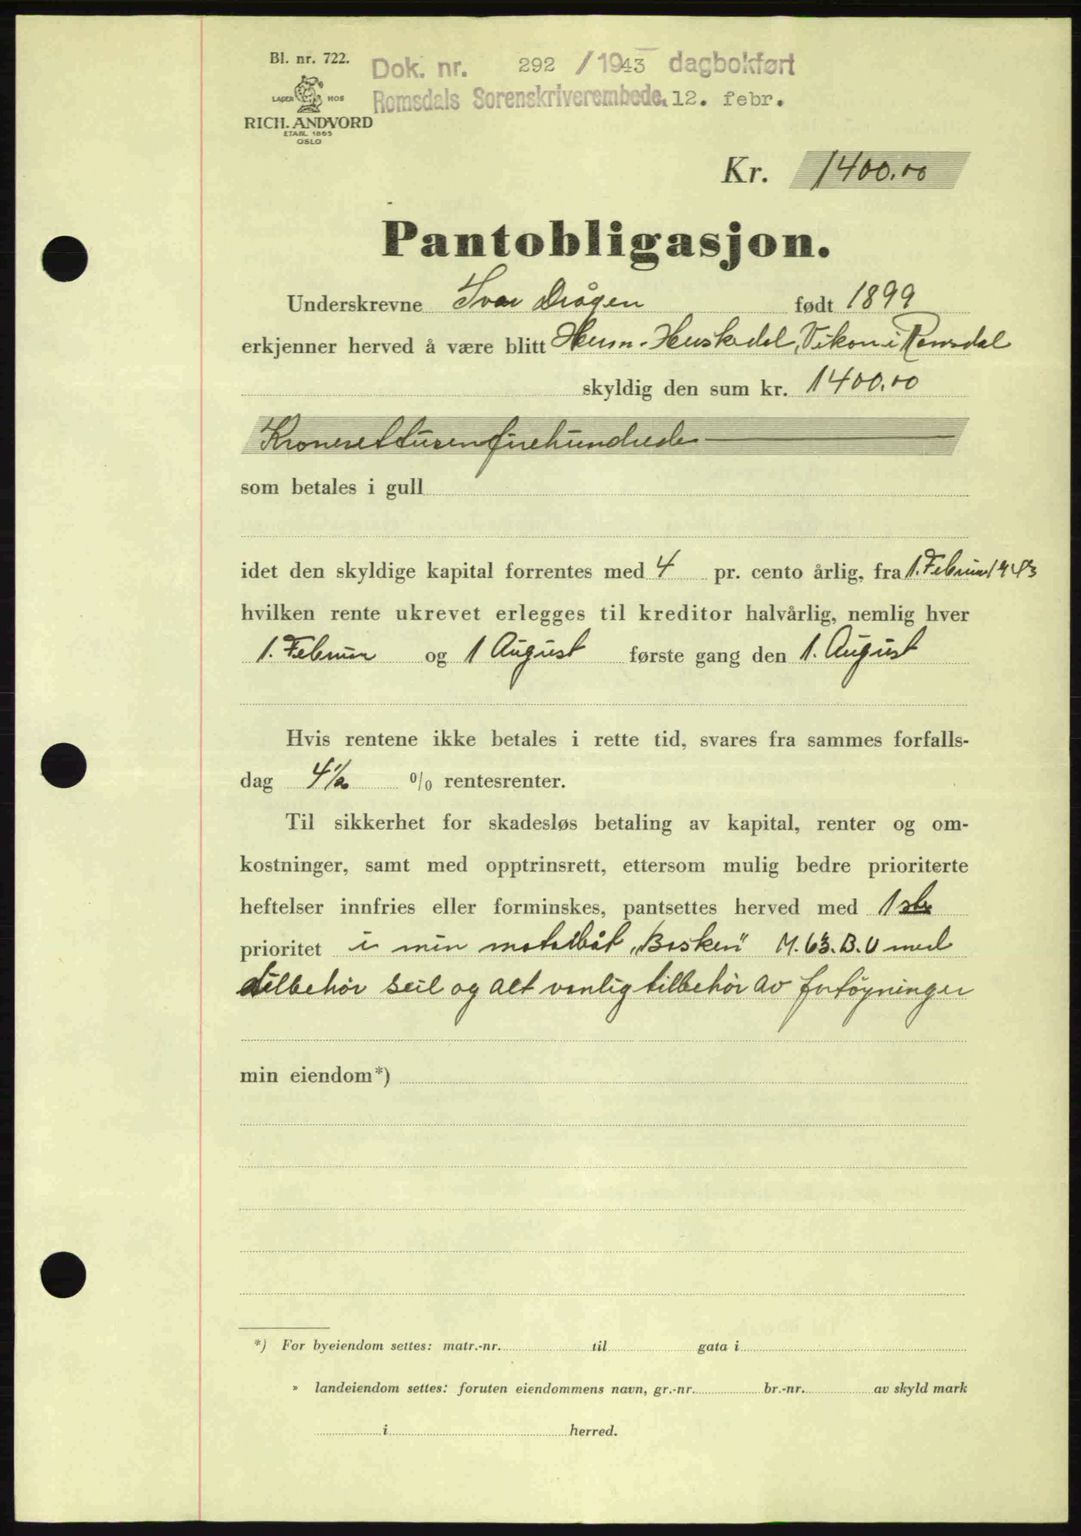 Bl. nr. 722.
LAGER HOS
RICH. ANDVORD
ETABL. 1865
OSLO
Dok. nr. 292 / 1943 dagbokført
Romsdals Sorenskriverembede. 12. febr.
Kr. 1400.00
Pantobligasjon.
Underskrevne Ivar Drågen født 1899
erkjenner herved å være blitt Herm. Huskedal, Vikon i Romsdal
skyldig den sum kr. 1400.00
Kroneretturenfirehundrede
som betales i gull
idet den skyldige kapital forrentes med 4 pr. cento årlig, fra 1. Februar 1943
hvilken rente ukrevet erlegges til kreditor halvårlig, nemlig hver
1. Februar og 1 August første gang den 1. August
Hvis rentene ikke betales i rette tid, svares fra sammes forfalls-
dag 4½ % rentesrenter.
Til sikkerhet for skadesløs betaling av kapital, renter og om-
kostninger, samt med opptrinsrett, ettersom mulig bedre prioriterte
heftelser innfries eller forminskes, pantsettes herved med 1ste
prioritet i min motorbåt „Basken" M. 63. B. U med
tilbehör seil og alt vanlig tilbehör av fortöyninger
min eiendom*)
*) For byeiendom settes: matr.-nr. til gata i
» landeiendom settes: foruten eiendommens navn, gr.-nr. br.-nr. av skyld mark
i herred.